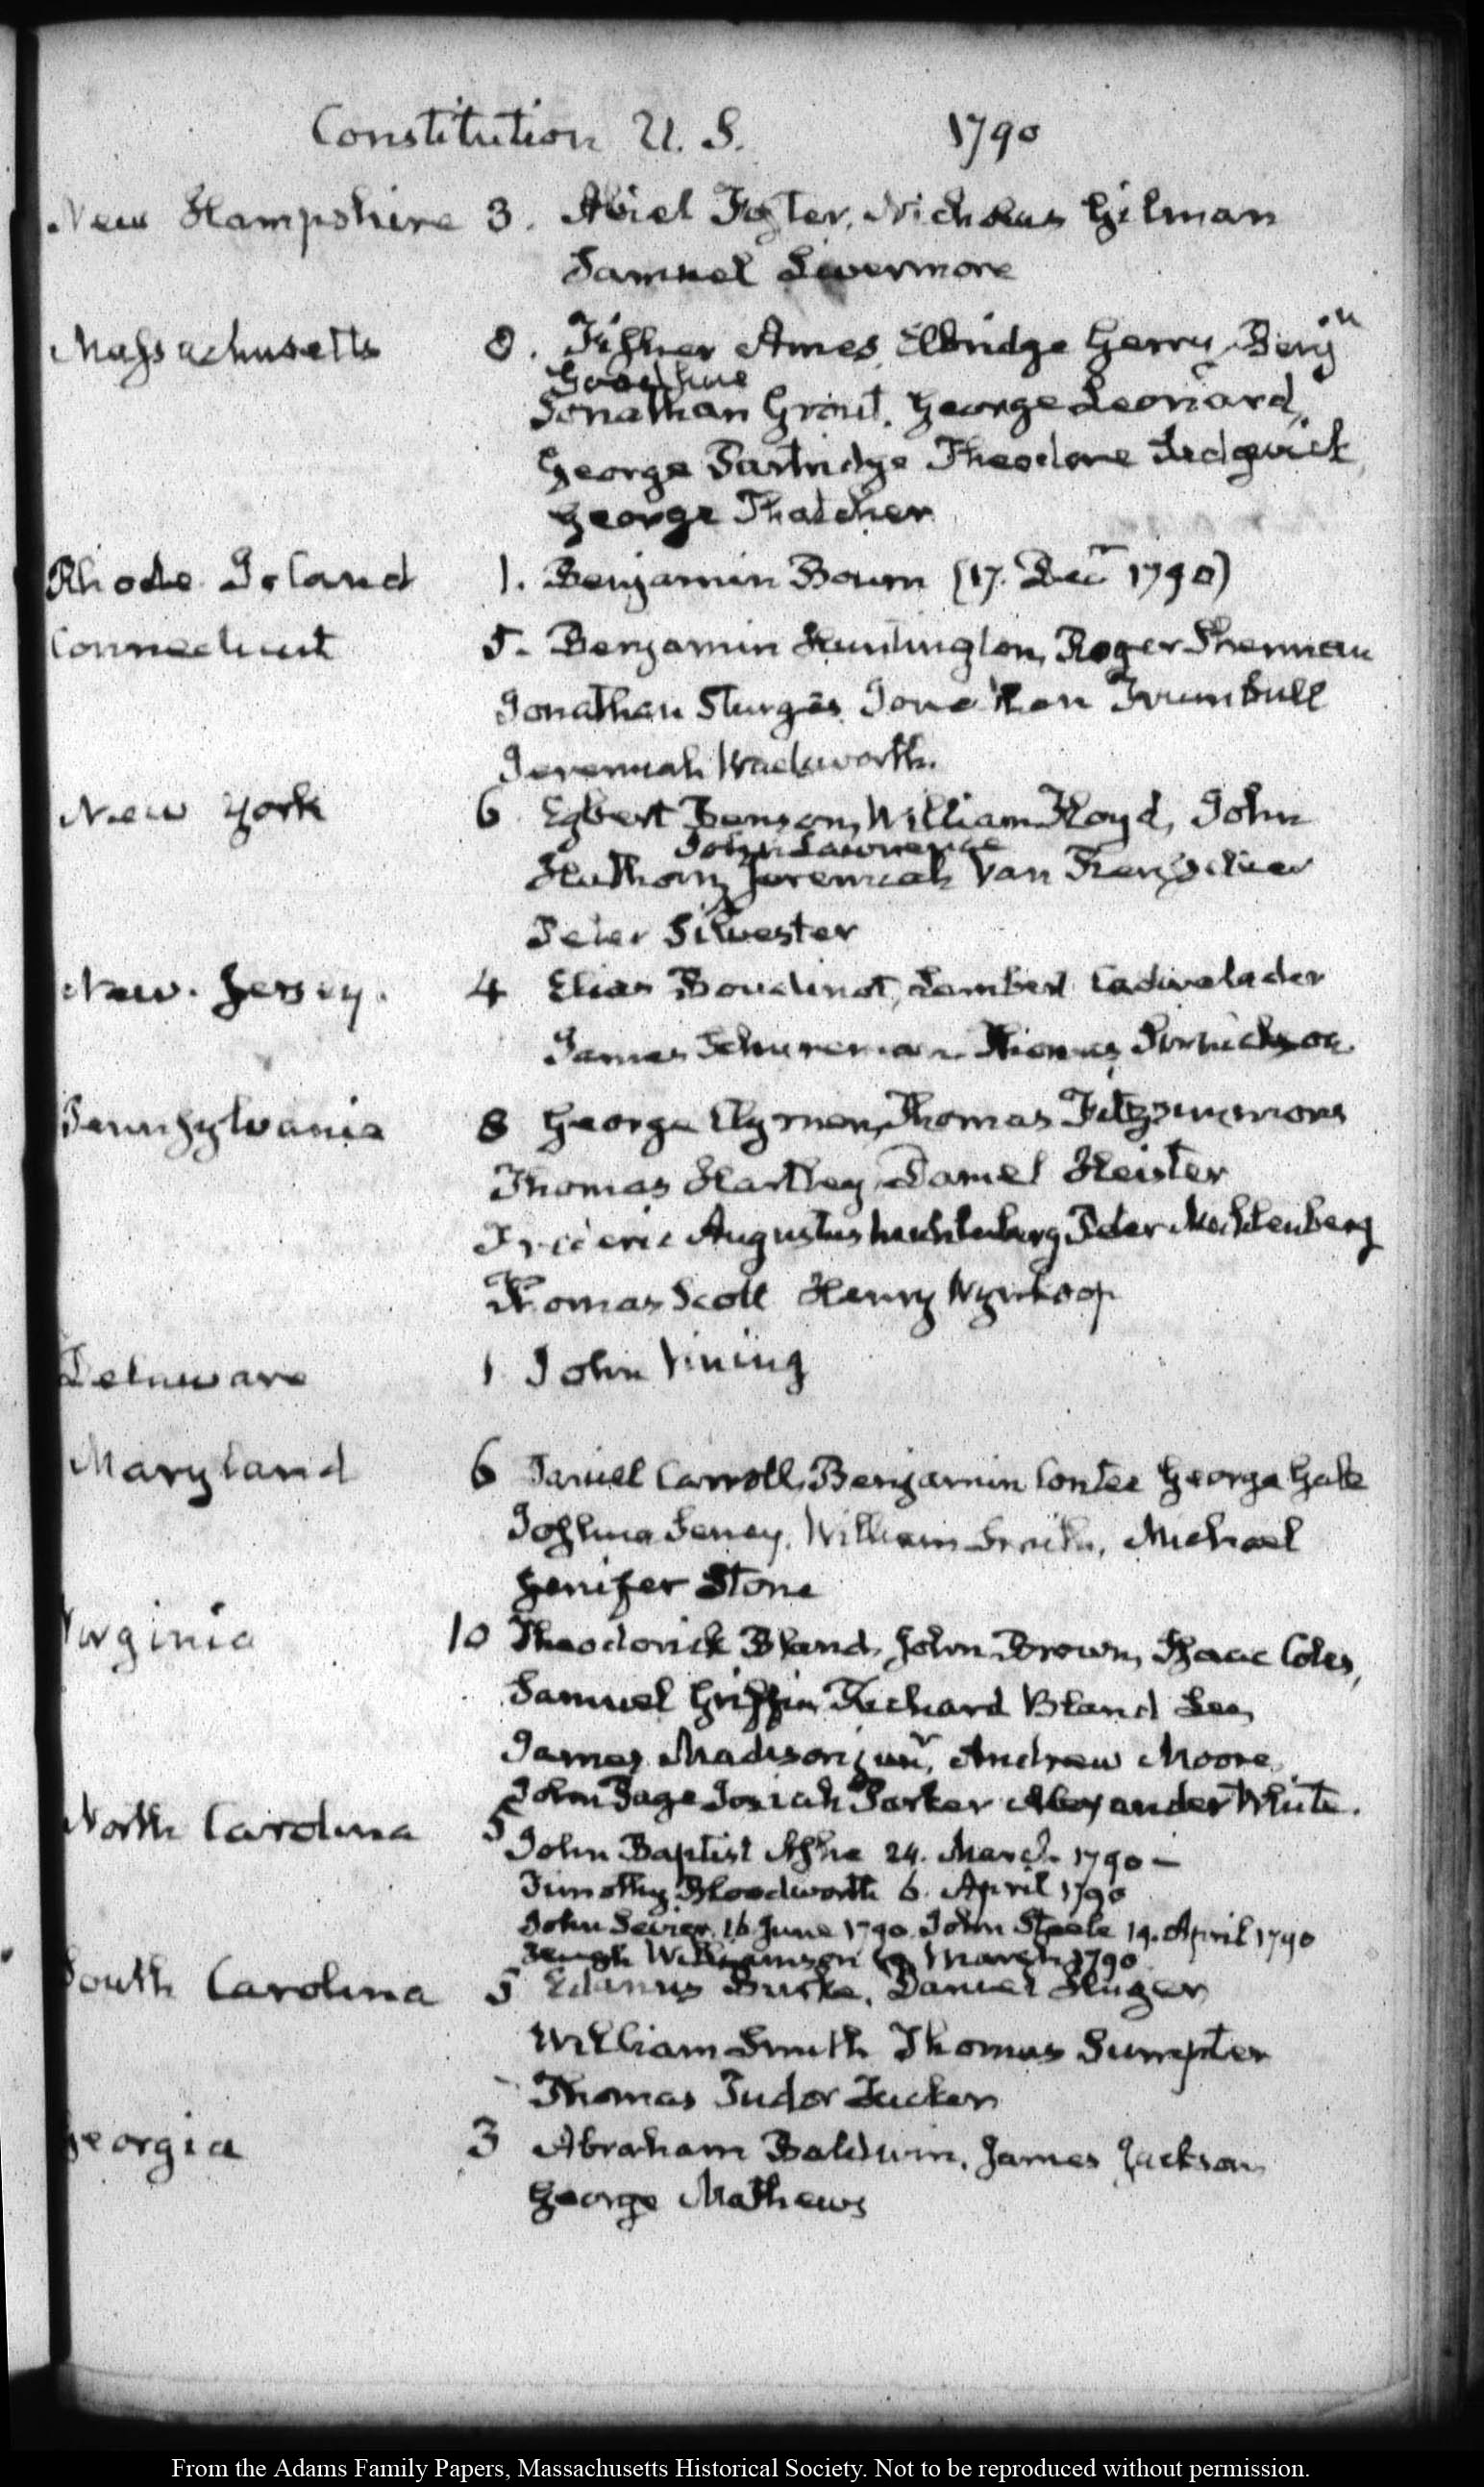 Constitution U. S. 1790
New Hampshire 3. Abiel Foster, Nicholas Gilman
Samuel Livermore
Massachusetts 8. Fisher Ames, Elbridge Gerry, Benjn
Goodhue
Jonathan Grout, George Leonard,
George Partridge Theodore Sedgwick
George Thatcher
Rhode Island 1. Benjamin Bourn (17. Decr 1790)
Connecticut 5- Benjamin Huntington, Roger Sherman
Jonathan Sturges Jonathan Trumbull
Jeremiah Wadsworth.
New York 6 Egbert Benson, William Floyd, John
John Lawrence
Hathorn, Jeremiah Van Rensselaer
Peter Silvester
New. Jersey. 4 Elias Boudinot, Lambert Cadwalader
James Schureman Thomas Sinnickson
Pennsylvania 8 George Clymer, Thomas Fitzsimmons
Thomas Hartley, Daniel Heister
Frederic Augustus Muhlenberg Peter Muhlenberg
Thomas Scott Henry Wynkoop
Delaware 1 John Vining
Maryland 6 Daniel Carroll, Benjamin Contee George Gale
Joshua Seney, William Smith, Michael
Jenifer Stone
Virginia 10 Theodorick Bland, John Brown, Isaac Coles,
Samuel Griffin Richard Bland Lee,
James Madison junr, Andrew Moore,
John Page Josiah Parker Alexander White.
North Carolina 5
John Baptist Ashe 24. March 1790 —
Timothy Bloodworth 6. April 1790
John Sevier 16 June 1790. John Steele 19. April 1790
Hugh Williamson 19 March 1790
South Carolina 5 Edanus Burke, Daniel Huger
William Smith Thomas Sumpter
Thomas Tudor Tucker
Georgia 3 Abraham Baldwin, James Jackson
George Mathews
From the Adams Family Papers, Massachusetts Historical Society. Not to be reproduced without permission.